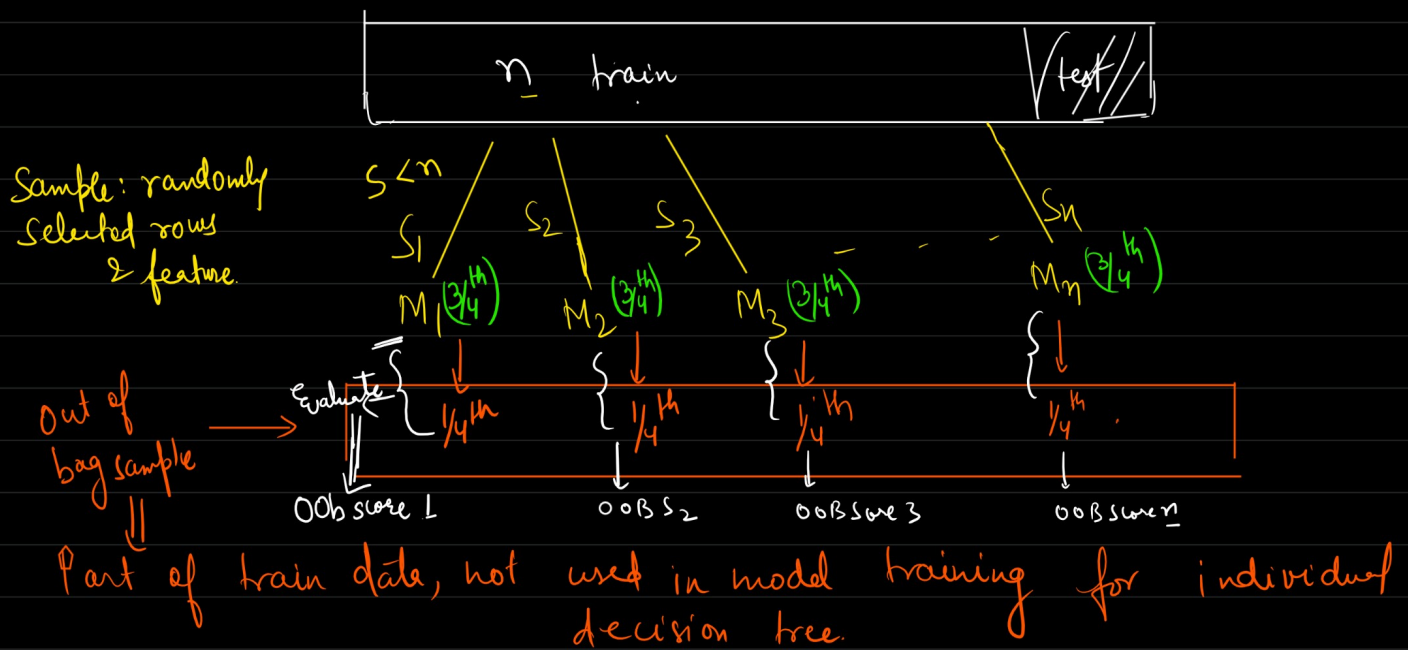 n train test
Sample: randomly
selected rows
& feature.
S < n
S1 S2 S3 - - - Sn
M1 (3/4th) M2 (3/4th) M3 (3/4th) Mn (3/4th)
Evaluate
1/4th 1/4th 1/4th 1/4th
Out of
bag sample
OOb score 1 OOB S2 OOB Score 3 OOB Score n
Part of train data, not used in model training for individual
decision tree.